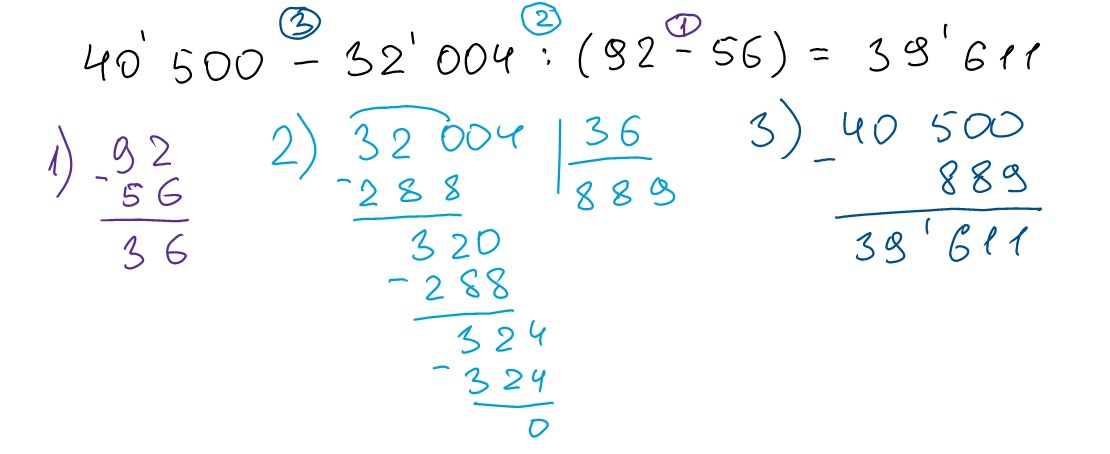 ③ ② ①
40' 500 - 32' 004 : (92 - 56) = 39' 611
1) 92
- 56
36
2) 32 004 | 36
- 288 889
320
- 288
324
- 324
0
3) 40 500
- 889
39' 611